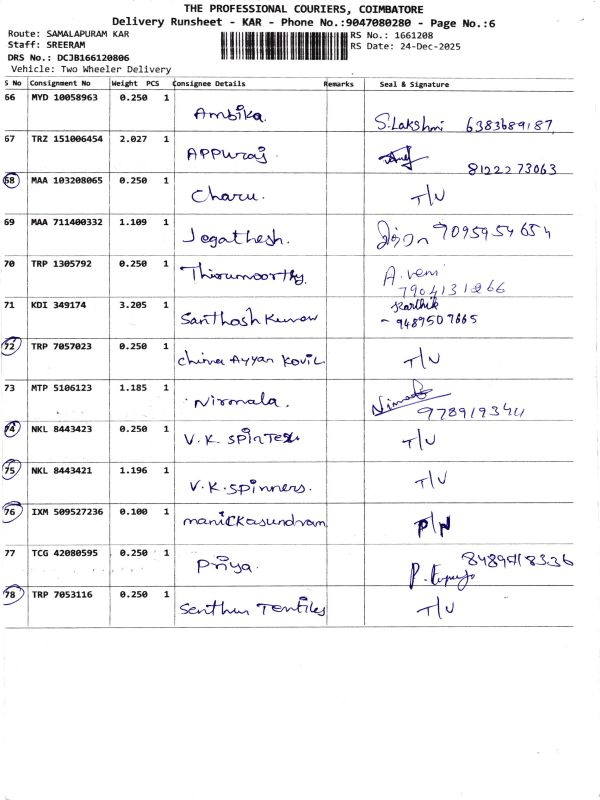 THE PROFESSIONAL COURIERS, COIMBATORE
Delivery Runsheet - KAR - Phone No.:9047080280 - Page No.:6
Route: SAMALAPURAM KAR
Staff: SREERAM
DRS No.: DCJB166120806
Vehicle: Two Wheeler Delivery
RS No.: 1661208
RS Date: 24-Dec-2025
S No Consignment No Weight PCS Consignee Details Remarks Seal & Signature
66 MYD 10058963 0.250 1 Ambika. S.Lakshmi 6383689187
67 TRZ 151006454 2.027 1 APPUraj 8122273063
68 MAA 103208065 0.250 1 Charu. T/U
69 MAA 711400332 1.109 1 Jegathesh. 9095954654
70 TRP 1305792 0.250 1 Thirumoorthy. A. veni
7904131266
71 KDI 349174 3.205 1 Santhosh Kumar Karthik
- 9489507665
72 TRP 7057023 0.250 1 China Ayyan Kovil T/U
73 MTP 5106123 1.185 1 Nirmala. 978919344
74 NKL 8443423 0.250 1 V.K. T/U
75 NKL 8443421 1.196 1 V.K.Spinners. T/U
76 IXM 509527236 0.100 1 manickasundram P/N
77 TCG 42080595 0.250 1 Priya. 8489918336
78 TRP 7053116 0.250 1 Senthur Textiles T/U